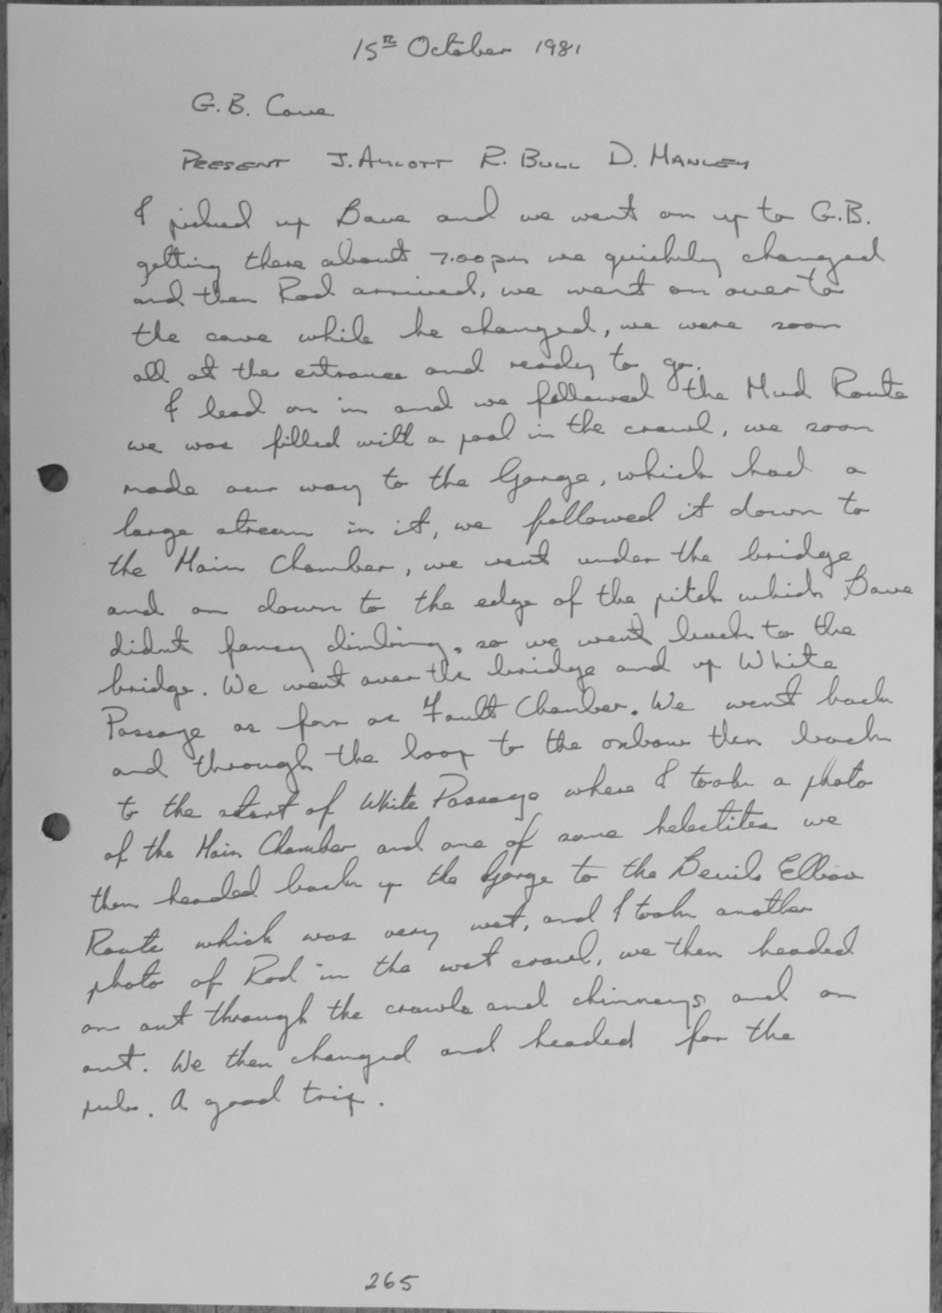 15th October 1981
G.B. Cave
PRESENT J. AYLCOTT R. BULL D. MANLEY
I picked up Dave and we went on up to G.B.
getting there about 7.00pm we quickly changed
and then Rod arrived, we went on over to
the cave while he changed, we were soon
all at the entrance and ready to go.
I lead on in and we followed the Mud Route
we was filled with a pool in the crawl, we soon
made our way to the Gorge, which had a
large stream in it, we followed it down to
the Main Chamber, we went under the bridge
and on down to the edge of the pitch which Dave
didn't fancy climbing, so we went back to the
bridge. We went over the bridge and up White
Passage as far as Fault Chamber. We went back
and through the loop to the oxbow then back
to the start of White Passage where I took a photo
of the Main Chamber and one of some helectites we
then headed back up the Gorge to the Devils Elbow
Route which was very wet, and I took another
photo of Rod in the wet crawl, we then headed
on out through the crawls and chimneys and on
out. We then changed and headed for the
pub. A good trip.
265